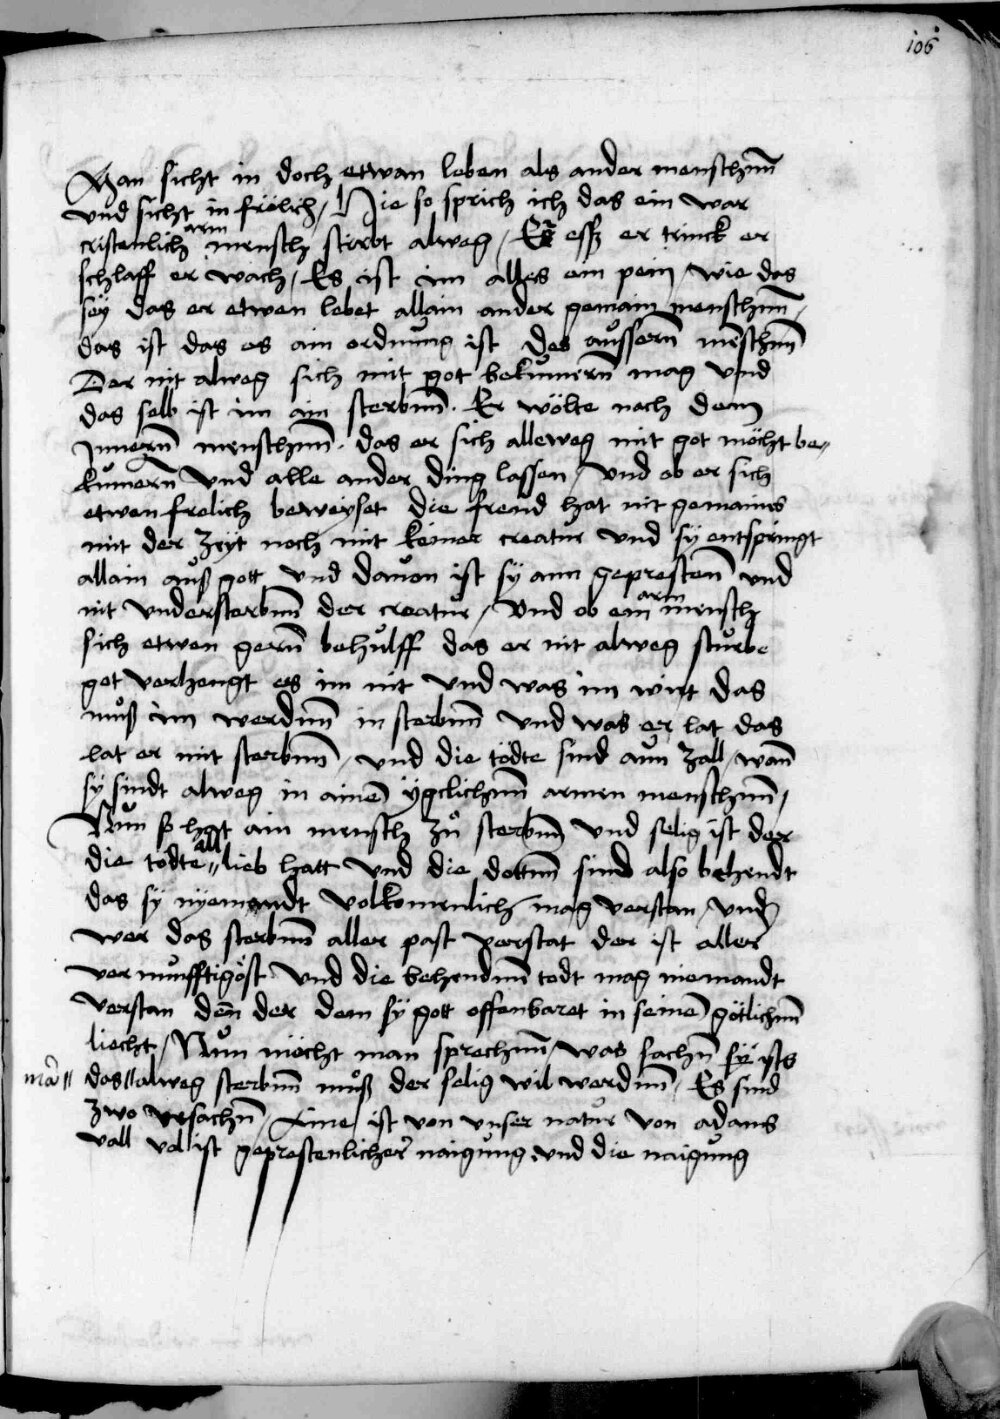 106
Man sicht in doch etwan leben als ander menschnn̄
vnd sicht in frölich / Hie so sprich ich das ein war
cristenlich arm mensch stirbt alweg / Er essz er trinck er
schlaff er wach / Es ist im alles ein pein / wie das
sey das er etwen lebet allain ander gemain menschnn̄ /
das ist das es ain ordnu̇ng ist des au̇ssern̄ menschnn̄
Der nit alweg sich mit got bekumern̄ mag vnd
das selb ist im ain sterbnn̄ . Er wölte nach dem
Jnnern̄ menschnn̄ . das er sich alleweg mit got möcht be„
kumern̄ vnd alle ander ding lassen / vnd ob er sich
etwen frolich beweyset die freud hat nit gemains
mit der zeyt noch mit keiner creatur vnd sy entspringt
allain auß gott vnd dauon ist sy ann gepresten̄ vnd
nit vndersterbnn̄ der creatur / Vnd ob ein arm mensch
sich etwen gern̄ behulff das er nit alweg stu̇rbe
got verhengt es im nit vnd was im wirt das
mu̇ß im werdnn̄ in sterbnn̄ vnd was er lat das
lat er mit sterbnn̄ / vnd die tödte sind aun zall / wann̄
sy sindt alweg in ainē ÿgclichnn̄ armen menschnn̄ /
Nu̇n so hatt ain mensch zu̇ sterbnn̄ vnd selig ist der
die tödte all „ lieb hatt vnd die dottnn̄ sind also behendt
das sy nyemandt volkomenlich mag verstan / vnd
wer das sterbnn̄ aller past verstat der ist aller
vernu̇nfftigöst vnd die behendnn̄ todt mag niemandt
verstan den̄ der dem sy gott offenbaret in seinē götlichnn̄
liecht / Nu̇n möcht man sprechnn̄ / was sachn̄ sy ists
das „ mā „ alweg sterbnn̄ mu̇ß der selig wil werdnn̄ / Es sind
zwo vrsachn̄ / Aine ist von vnser natur von adams
vall vol ist geprestenlicher naigu̇ng vnd die naigu̇ng